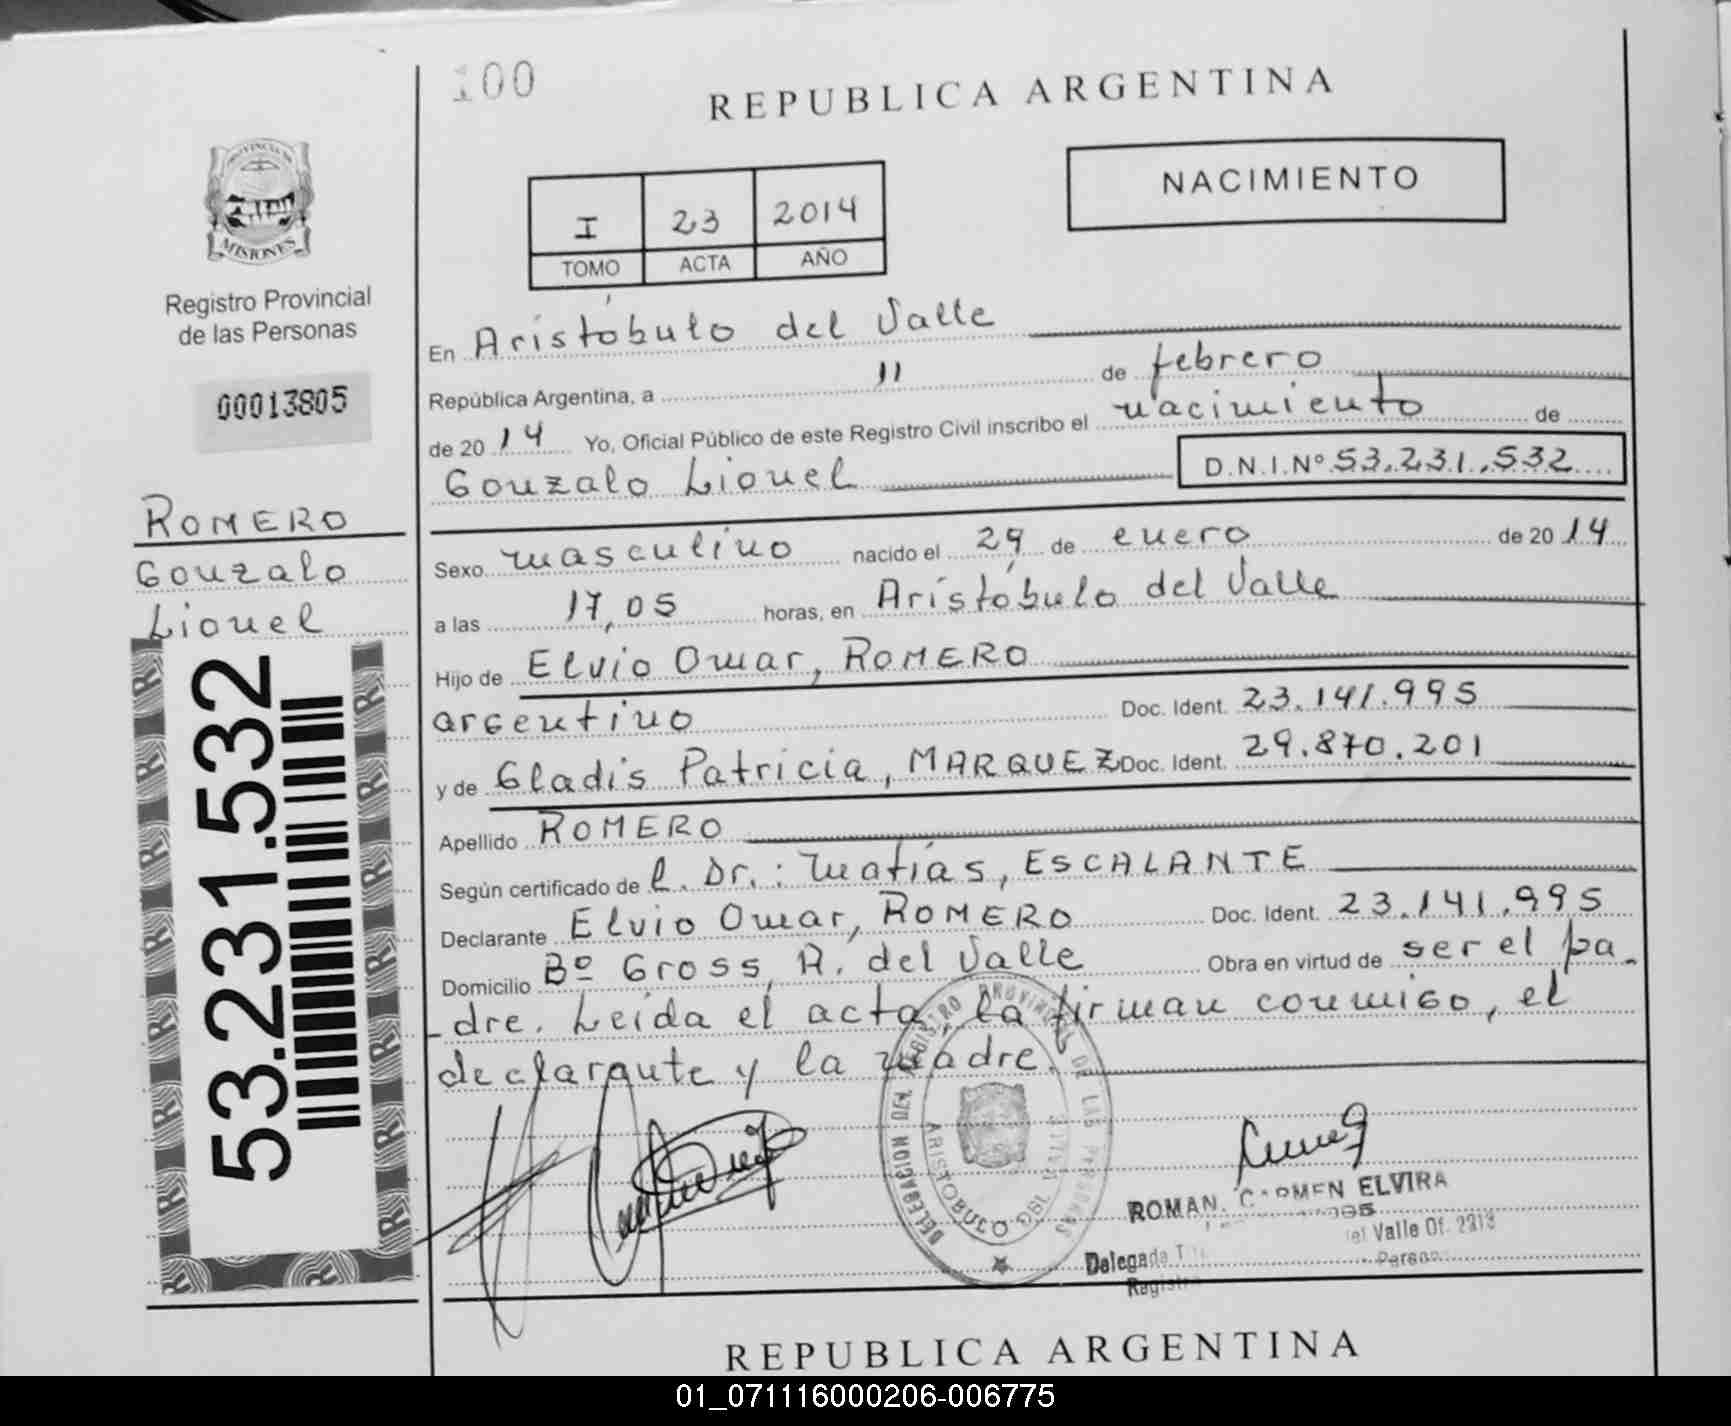 100
REPUBLICA ARGENTINA
PROVINCIA DE
MISIONES
Registro Provincial
de las Personas
00013805
I 23 2014
TOMO ACTA AÑO
NACIMIENTO
En Aristóbulo del Valle
República Argentina, a 11 de febrero
de 20 14 Yo, Oficial Público de este Registro Civil inscribo el nacimiento de
Gonzalo Lionel D.N.I.Nº 53.231.532
ROMERO
Gonzalo
Lionel
53.231.532
Sexo masculino nacido el 29 de enero de 20 14
a las 17,05 horas, en Aristóbulo del Valle
Hijo de Elvio Omar, ROMERO
argentino Doc. Ident. 23.141.995
y de Gladis Patricia, MARQUEZ Doc. Ident. 29.870.201
Apellido ROMERO
Según certificado de l. Dr.: Matías, ESCALANTE
Declarante Elvio Omar, ROMERO Doc. Ident. 23.141.995
Domicilio Bº Gross, A. del Valle Obra en virtud de ser el pa-
-dre. Leída el acta, la firman conmigo, el
declarante y la madre.
DELEGACION DEL REGISTRO PROVINCIAL DE LAS PERSONAS
ARISTOBULO DEL VALLE
ROMAN, CARMEN ELVIRA
Delegada
el Valle Of. 2313
REPUBLICA ARGENTINA
01_071116000206-006775